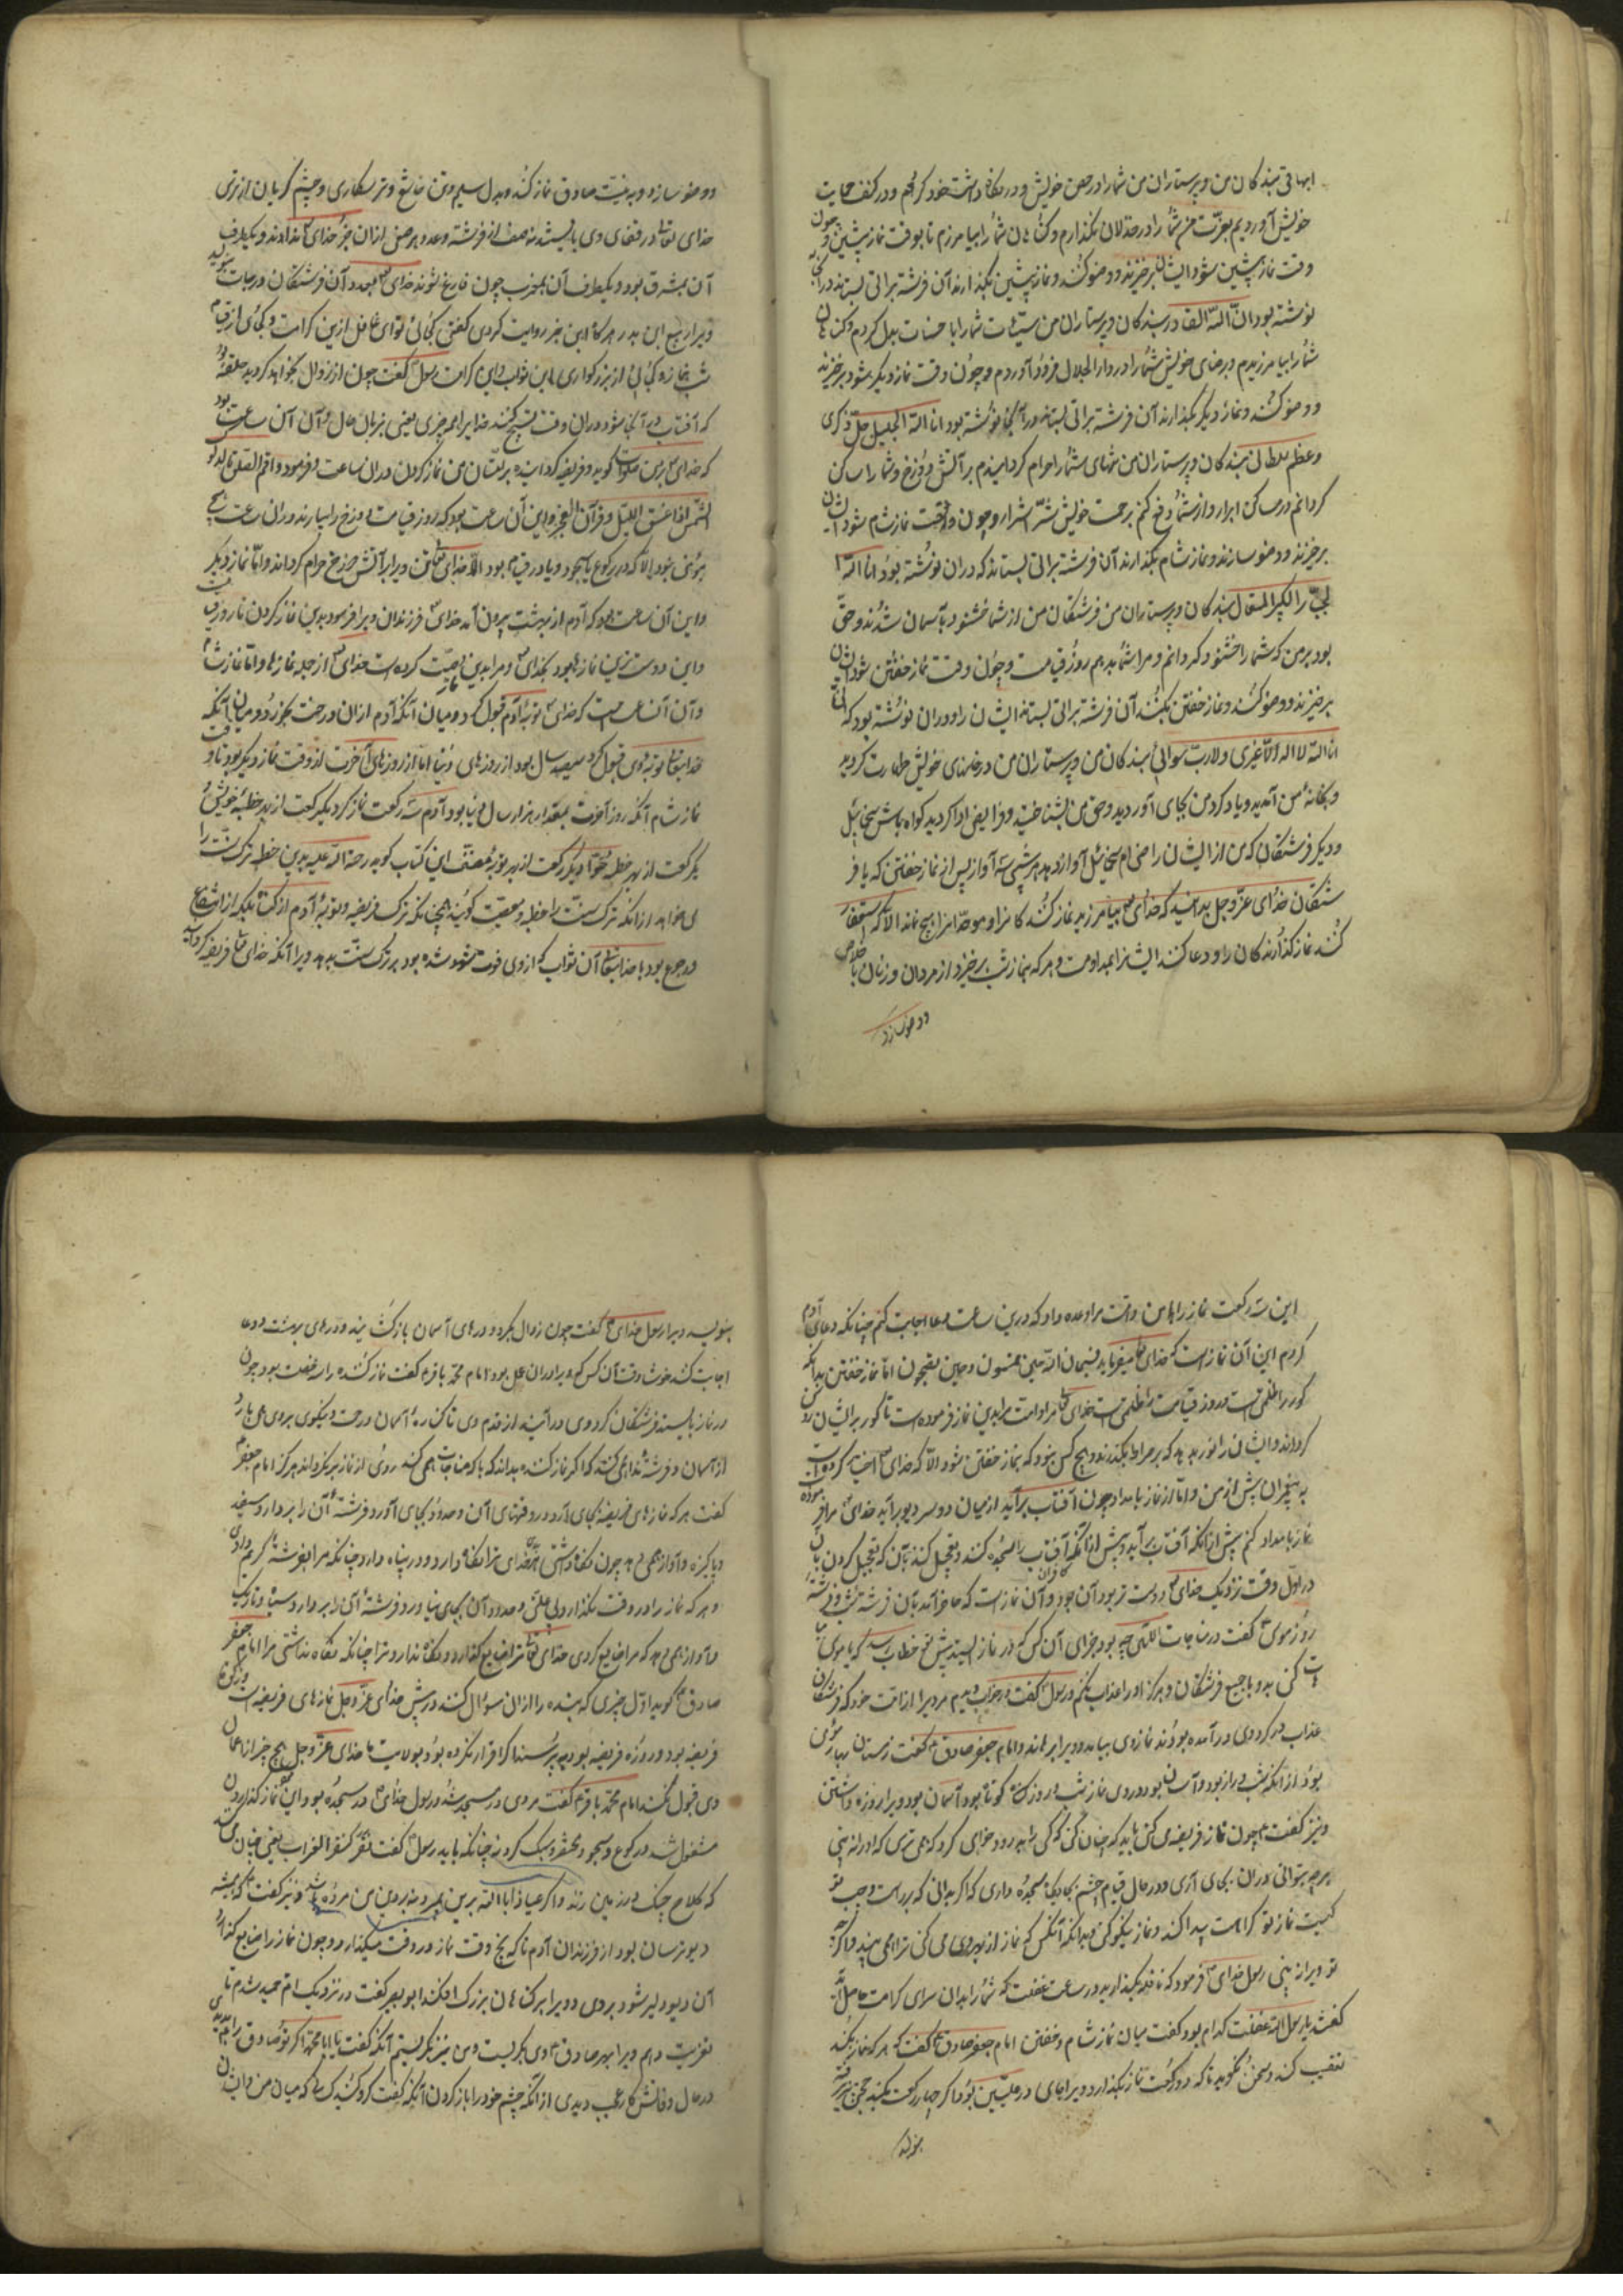 ابهاقی بندگان من و پرستاران من شما را در حصن خویش و در نگاه داشت خود کردم و در کنف حمایت
خویش آوردیم بعزت من شما را در خذلان نگذارم و گناهان شما را بیامرزم تا بوقت نماز پیشین و چون
وقت نماز پیشین شود ایشان برخیزند و وضو کنند و نماز پیشین بگذارند آن فرشته براتی بستاند در آنجا
نوشته بود ان الله القادر بندگان و پرستاران من سیئات شما را با حسنات بدل کردم و گناهان
شما را بیامرزیدم و برضای خویش شما را در دار الجلال فرود آوردم و چون وقت نماز دیگر بشود برخیزند
و وضو کنند و نماز دیگر بگذارند آن فرشته براتی بستاند در آنجا نوشته بود انا الله الجلیل جل ذکری
و عظم سلطانی بندگان و پرستاران من تنهای شما را حرام گردانیدم بر آتش دوزخ و شما را ساکن
گردانم در مساکن ابرار و از شما دفع کنم برحمت خویش شر اشرار و چون وقت نماز شام شود ایشان
برخیزند و وضو سازند و نماز شام بگذارند آن فرشته براتی بستاند که در آن نوشته بود انا الله
الجبار الکبیر المتعال بندگان و پرستاران من فرشتگان من از شما خشنود بآسمان شدند و حق
بود بر من که شما را خشنود گردانم و مراد شما بدهم روز قیامت و چون وقت نماز خفتن شود ایشان
برخیزند و وضو کنند و نماز خفتن بکنند آن فرشته براتی بستاند ایشان را و در آن نوشته بود که انی
انا الله لا اله الا غیری و لا رب سوائی بندگان من و پرستاران من در خانهای خویش طهارت کردید
و بخانه من آمدید و یاد کرد من بجای آوردید و حق من بشناختید و فرایض ادا کردید گواه باش سخائیل
و دیگر فرشتگان که من از ایشان راضی ام سخائیل آواز دهد هر شبی سه آواز پس از نماز خفتن که یا فر
شتگان خدای عز و جل بدانید که خدای بیامرزید نماز کنندگان را و موحدانرا هیچ نماند الا که استغفار
کنند نماز گذارندگان را و دعا کنند ایشانرا بمداومت و هر که بنماز شب برخیزد از مردان و زنان با اخلاص
و وضو سازد
و وضو سازد و به نیت صادق نماز کند و بدل سلیم و تن خاشع و ترسکاری و چشم گریان از ترس
خدای تعالی در قفای وی بایستند نه صف از فرشته و عدد هر صفی از آن جز خدای نداند و یکطرف
آن بمشرق بود و یکطرف آن بمغرب چون فارغ شوند خدای بعدد آن فرشتگان درجات بنویسد
ویرا ربیع ابن بدر هر گاه این خبر روایت کردی گفتی کجائی تو ای غافل ازین کرامت و کجائی از قیام
شب بنماز و کجائی از بزرگواری با این ثواب و این کرامت رسول گفت چون از زوال بخواهد گردید حلقه
که آفتاب در آنجا شود در آن وقت تسبیح کنند خدایرا هر چیزی یعنی بزبان حال و آن آن ساعت بود
که خدای بر من صلوات گوید و فریضه گردانیده بر امتان من نماز کردن در آن ساعت و فرمود و اقم الصلوة لدلوک
الشمس الی غسق اللیل و قرآن الفجر و این آن ساعت بود که روز قیامت دوزخ را بیارند در آن ساعت هیچ
مؤمنی نبود الا که در رکوع یا سجود و یا در قیام بود الا خدای تعالی تن ویرا بر آتش دوزخ حرام گرداند و اما نماز دیگر
و این آن ساعت بود که آدم از بهشت بیرون آمد خدای فرزندان ویرا فرمود بدین نماز کردن تا روز قیامت
و این دوسترین نمازها بود بخدای و مرا بدین وصیت کرده است خدای از جمله نمازها و اما نماز شام
و آن آن ساعت است که خدای توبه آدم قبول کرد و میان آنکه آدم از آن درخت بخورد و میان آنکه
خدایتعالی توبه وی قبول کرد سیصد سال بود از روزهای دنیا اما از روزهای آخرت از وقت نماز دیگر بود تا وقت
نماز شام آنکه روز آخرت بمقدار هزار سال دنیا بود آدم سه رکعت نماز کرد یکرکعت از بهر خطیه خویش و
یکرکعت از بهر خطیه حوا و یکرکعت از بهر توبه مصنف این کتاب گوید رحمة الله علیه بدین خطیه ترک سنت را
می خواهد از آنکه ترک سنت را خطیه و معصیت گویند همچنانکه ترک فریضه و توبه آدم از گناه بلکه از انقطاع
و رجوع بود با خدایتعالی آن ثواب که از وی فوت شده بود بر ترک سنت بدهد ویرا آنکه خدای تعالی فریضه کردانید
این سه رکعت نماز را بر امت من و مرا وعده داد که درین ساعت دعا اجابت کنم چنانکه دعای آدم
کردم این آن نماز است که خدای تعالی میفرماید فسبحان الله حین تمسون و حین تصبحون اما نماز خفتن بدانکه
گور را ظلمتی است و روز قیامت را ظلمتی است خدای تعالی مرا و امت مرا بدین نماز فرموده است تا گور بر ایشان روشن
گرداند و ایشان را نور بدهد که بر صراط بگذرند و هیچ کس نبود که بنماز خفتن شود الا که خدای اجابت کرده است
پیغمبران پیش از من و اما از نماز بامداد چون آفتاب برآید از میان دو سر دیو برآید خدای مرا فرموده
نماز بامداد کنم پیش از آنکه آفتاب برآید و پیش از آنکه آفتاب را سجده کنند و تعجیل کنند بآن که تعجیل کردن بآن
در اول وقت نزدیک خدای دوست تر بود آن چه و آن نماز است که حاضر آید بآن فرشته شب و فرشته
روز موسی گفت در مناجات اللهی چه بود جزای آن کس که در نماز ایستد پیش تو خطاب رسد که یا موسی مبا
هات کنی بدو با جمیع فرشتگان و هرگز او را عذاب نکنم و رسول گفت در خواب دیدم مردیرا از امت خود که فرشتگان
عذاب گرد وی در آمده بودند نمازوی بیامد و ویرا برهاند و امام جعفر صادق گفت زمستان بهار مؤمن
بود از آنکه شب دراز بود و آسان بود بر وی نماز شب و روز کوتاه بود و آسان بود ویرا روزه داشتن
و نیز گفت چون نماز فریضه می کنی باید که چنان کنی گوئی که بدرود خواهی کرد که همی ترسی که او را نه بینی
هر چه بتوانی در آن بجای آری و در حال قیام چشم بجایگاه سجده داری که اگر بدانی که بر راست و چپ تو
کیست نماز تو کراهت پیدا کند و نماز نیکو کنی و بدانکه آنکس که نماز از بهر وی می کنی ترا همی بیند و اگر چه
تو ویرا نه بینی رسول خدای فرمود که نافله بگذارید در ساعت غفلت که شما را بدان سرای کرامت حاصل آید
گفتند یا رسول الله غفلت کدام بود گفت میان نماز شام و خفتن امام جعفر صادق گفت که هر که نماز بکند
تعقیب کند و سخن نگوید تا که دو رکعت نماز بگذارد ویرا جای در علیین بود و اگر چهار رکعت بکند حجی پذیرفته
بنویسد
بنویسند ویرا رسول خدای گفت چون زوال بگردد درهای آسمان بازگشایند و درهای بهشت و دعا
اجابت کنند خوشا وقت آن کس که ویرا در آن عمل بود امام محمد باقر گفت نماز کننده را سه خصلت بود چون
در نماز بایستد فرشتگان گرد وی در آیند از قدم وی تا کناره آسمان و رحمت و نیکوی بر وی همی بارد
از آسمان و فرشته ندا همی کند که اگر نماز کننده بداند که با که مناجات همی کند روی از نماز برنگرداند هرگز امام جعفر
گفت هر که نمازهای فریضه بجای آرد در وقتهای آن و حدود بجای آورد فرشته آن را بردارد سفید
و پاکیزه و آواز همی دهد چون نگاه داشتی مرا خدای ترا نگاه دارد و در پناه دارد چنانکه مرا بفرشته کریم دادی
و هر که نماز را در وقت نگذارد بی علتی و حدود آن بجای نیاورد فرشته آن را بردارد سیاه و تاریک
و آواز همی دهد که مرا ضایع کردی خدای تعالی ترا ضایع گذارد و نگاه ندارد ترا چنانکه نگاه نداشتی مرا امام جعفر
صادق گوید اول چیزی که بنده را از آن سؤال کنند در پیش خدای عز و جل نمازهای فریضه است و زکوة
فریضه بود و روزه فریضه بود چه پرسند اگر اقرار نکرده بود بولایت ما خدای عز و جل هیچ چیز از اعمال
وی قبول نکند امام محمد باقر گفت مردی در مسجد شد و رسول خدای در مسجد بود این نماز گذاردن
مشغول شد در رکوع و سجود تقصیر و سبک کرد نه چنانکه باید رسول گفت نقر کنقر الغراب یعنی چنان می کند
که کلاغ چنگ در زمین زند و اگر عیاذا بالله برین بمیرد نه بر دین من مرده باشد و نیز گفت که همیشه
دیو ترسان بود از فرزندان آدم تا که پنج وقت نماز در وقت میگذارد و چون نماز را ضایع گذارد
آن دیو دلیر شود بروی و ویرا بر گناهان بزرگ افکند ابو بصیر گفت در نزدیک ام حمیده شدم تا
تعزیت دهم ویرا بهر صادق وی بگریست و من نیز بگریستم آنگه گفت یا ابا محمد اگر تو صادق را بدیدی
در حال وفاتش کار عجب دیدی از آنکه چشم خود را باز کردن آنگه گفت گرد کنید کسانی که میان من و ایشان